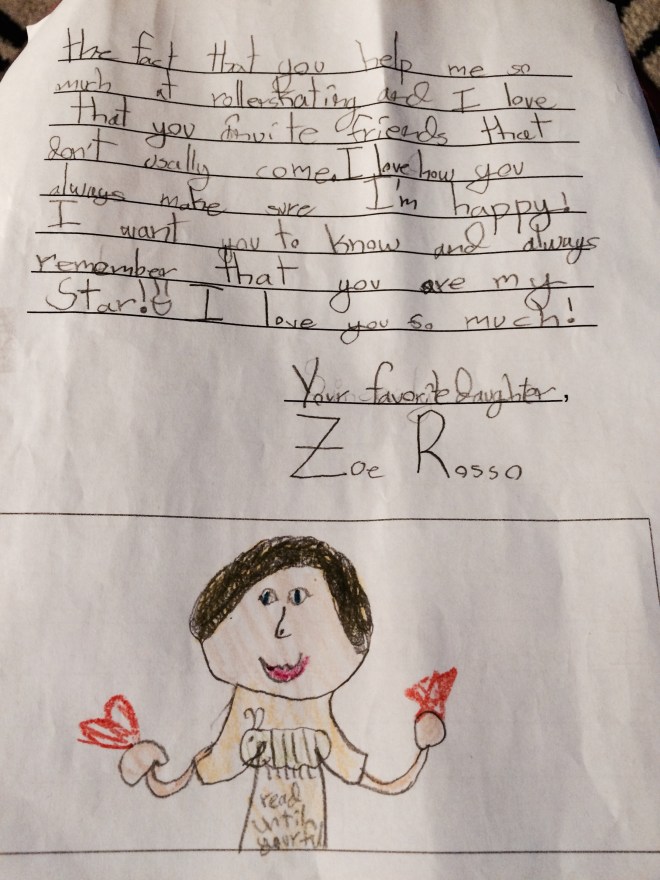 the fact that you help me so
much at rollerskating and I love
that you invite friends that
don't usally come. I love how you
always make sure I'm happy!
I want you to know and always
remember that you are my
Star! I love you so much!
Your favorite daughter,
Zoe Rosso
read
until
your